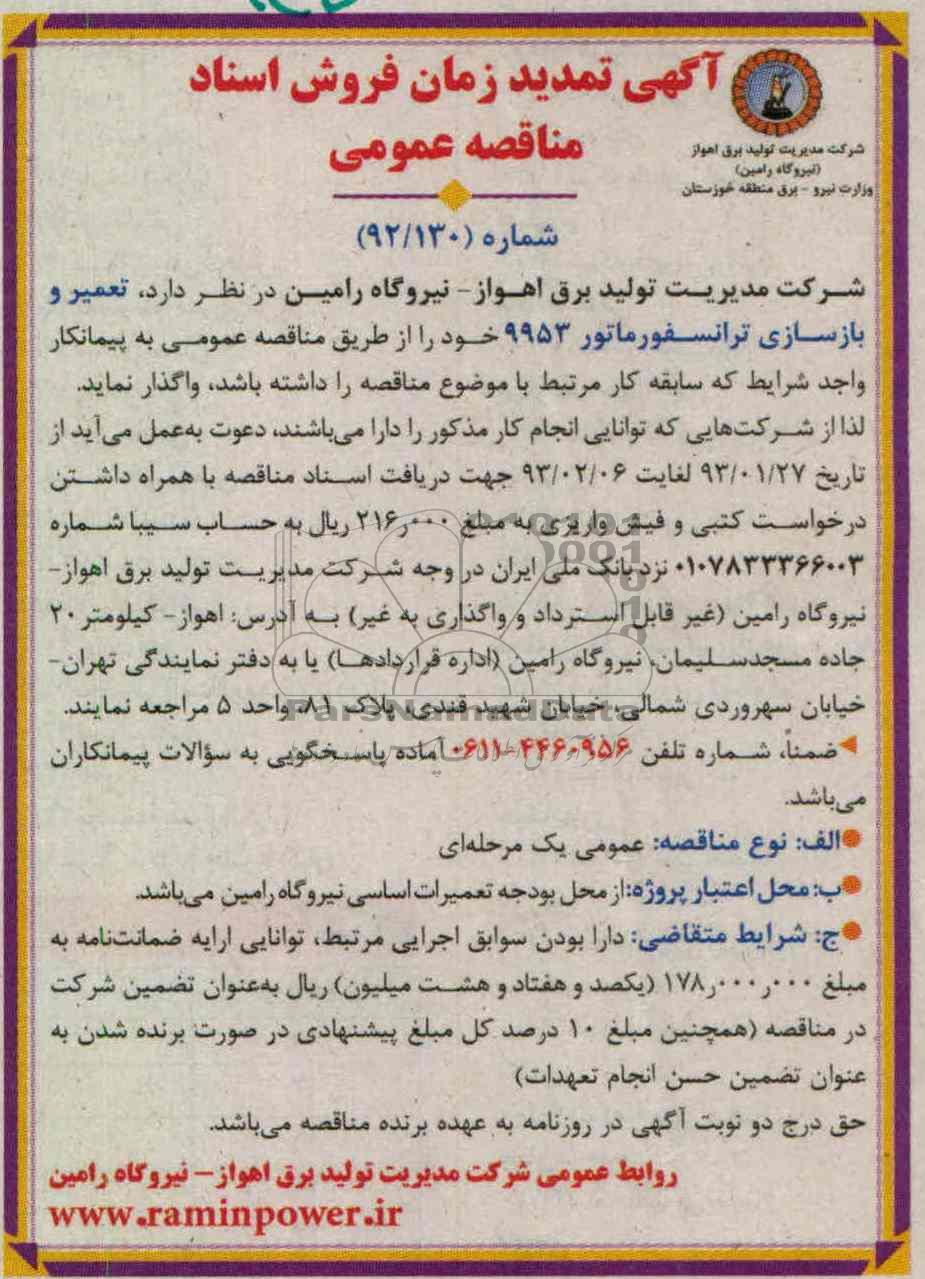 آگهی تمدید زمان فروش اسناد
مناقصه عمومی
شرکت مدیریت تولید برق اهواز
(نیروگاه رامین)
وزارت نیرو - برق منطقه خوزستان
شماره (۹۲/۱۳۰)
شرکت مدیریت تولید برق اهواز - نیروگاه رامین در نظر دارد، تعمیر و
بازسازی ترانسفورماتور ۹۹۵۳ خود را از طریق مناقصه عمومی به پیمانکار
واجد شرایط که سابقه کار مرتبط با موضوع مناقصه را داشته باشد، واگذار نماید.
لذا از شرکت‌هایی که توانایی انجام کار مذکور را دارا می‌باشند، دعوت به‌عمل می‌آید از
تاریخ ۹۳/۰۱/۲۷ لغایت ۹۳/۰۲/۰۶ جهت دریافت اسناد مناقصه با همراه داشتن
درخواست کتبی و فیش واریزی به مبلغ ۲۱۶٫۰۰۰ ریال به حساب سیبا شماره
۰۱۰۷۸۳۳۳۶۶۰۰۳ نزد بانک ملی ایران در وجه شرکت مدیریت تولید برق اهواز-
نیروگاه رامین (غیر قابل استرداد و واگذاری به غیر) به آدرس: اهواز- کیلومتر ۲۰
جاده مسجدسلیمان، نیروگاه رامین (اداره قراردادها) یا به دفتر نمایندگی تهران-
خیابان سهروردی شمالی، خیابان شهید قندی، پلاک ۸۱، واحد ۵ مراجعه نمایند.
ParsNamadData
ضمناً، شماره تلفن ۴۴۶۰۹۵۶-۰۶۱۱ آماده پاسخگویی به سؤالات پیمانکاران
می‌باشد.
الف: نوع مناقصه: عمومی یک مرحله‌ای
ب: محل اعتبار پروژه: از محل بودجه تعمیرات اساسی نیروگاه رامین می‌باشد.
ج: شرایط متقاضی: دارا بودن سوابق اجرایی مرتبط، توانایی ارایه ضمانت‌نامه به
مبلغ ۱۷۸٫۰۰۰٫۰۰۰ (یکصد و هفتاد و هشت میلیون) ریال به‌عنوان تضمین شرکت
در مناقصه (همچنین مبلغ ۱۰ درصد کل مبلغ پیشنهادی در صورت برنده شدن به
عنوان تضمین حسن انجام تعهدات)
حق درج دو نوبت آگهی در روزنامه به عهده برنده مناقصه می‌باشد.
روابط عمومی شرکت مدیریت تولید برق اهواز- نیروگاه رامین
www.raminpower.ir